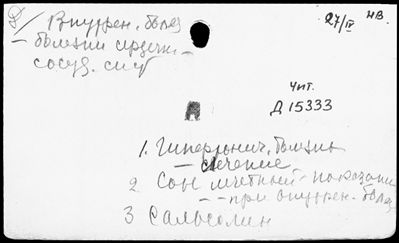 Д/ Внутрен. болез
27/IV нв.
– болезни сердечн. –
сосуд. сис
Чит.
Д 15333
1. Гипертонич. болезнь
– лечение
2 Сон лечебный – показани
– – при внутрен. болез
3 Сальсолин